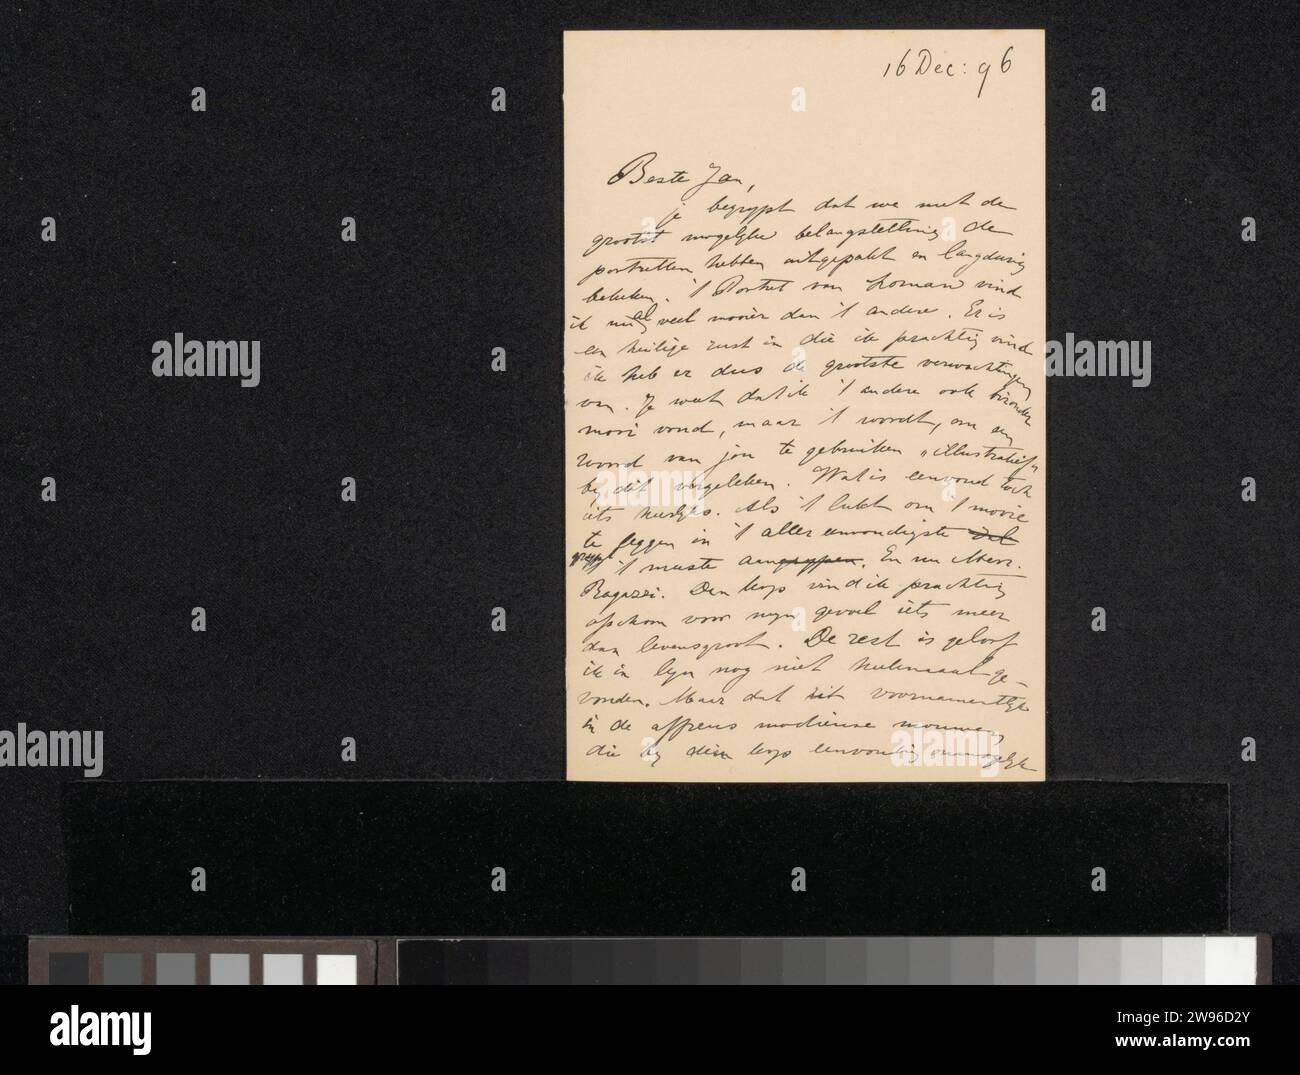 16 Dec: 96
Beste Jan,
je begrypt dat we met de
grootst mogelyke belangstelling de
portretten hebben uitgepakt en langdurig
bekeken. 't Portret van Loman vind
ik al veel mooier dan 't andere. Er is
een heilige rust in die ik prachtig vind
ik heb er dus de grootste verwachtingen
van. Je weet dat ik 't andere ook bizonder
mooi vond, maar 't wordt, om een
woord van jou te gebruiken „illustratief"
by dit vergeleken. Wat is eenvoud toch
iets heerlyks. Als 't lukt om 't mooie
te leggen in 't aller eenvoudigste
grypt 't meeste aan. En nu Mevr.
Ragazzi. Den kop vind ik prachtig
ofschoon voor myn gevoel iets meer
dan levensgroot. De rest is geloof
ik in lyn nog niet helemaal ge-
vonden. Maar dat zit voornamentlyk
in de affreus modieuse mouwen
die by dien kop eenvoudig onmogelyk
a alamy
alamy
Image ID: 2W96D2Y
www.alamy.com